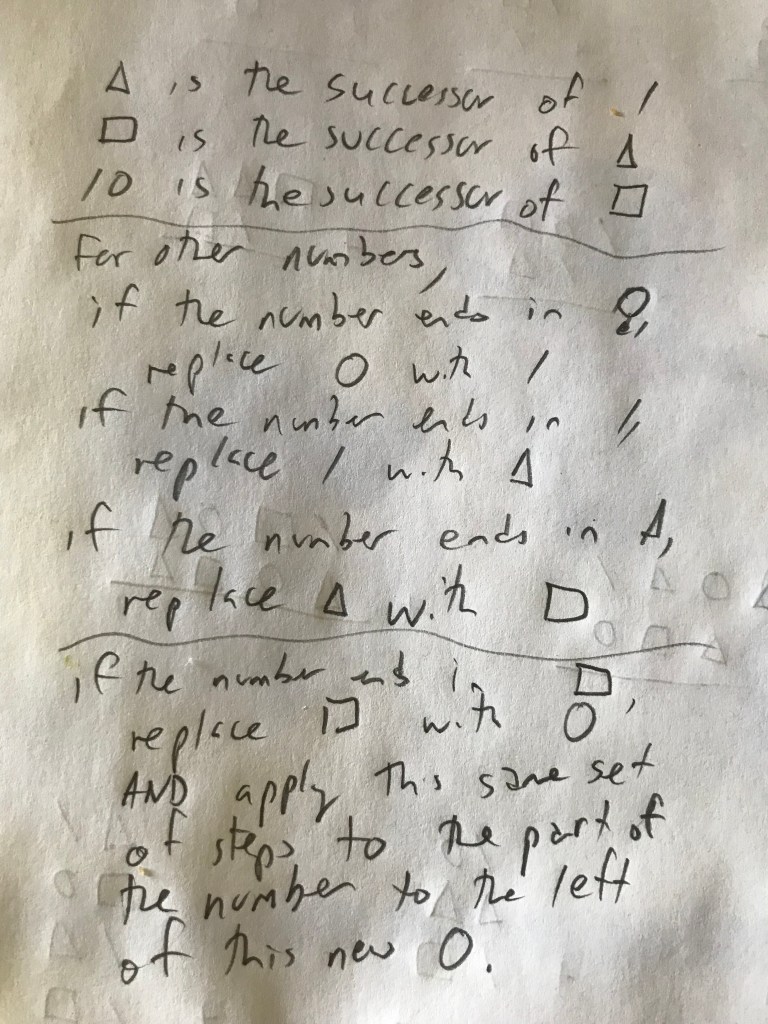 △ is the successor of /
□ is the successor of △
/0 is the successor of □
For other numbers,
if the number ends in 0,
replace 0 with /
if the number ends in /,
replace / with △
if the number ends in △,
replace △ with □
if the number ends in □,
replace □ with 0
AND apply this same set
of steps to the part of
the number to the left
of this new 0.